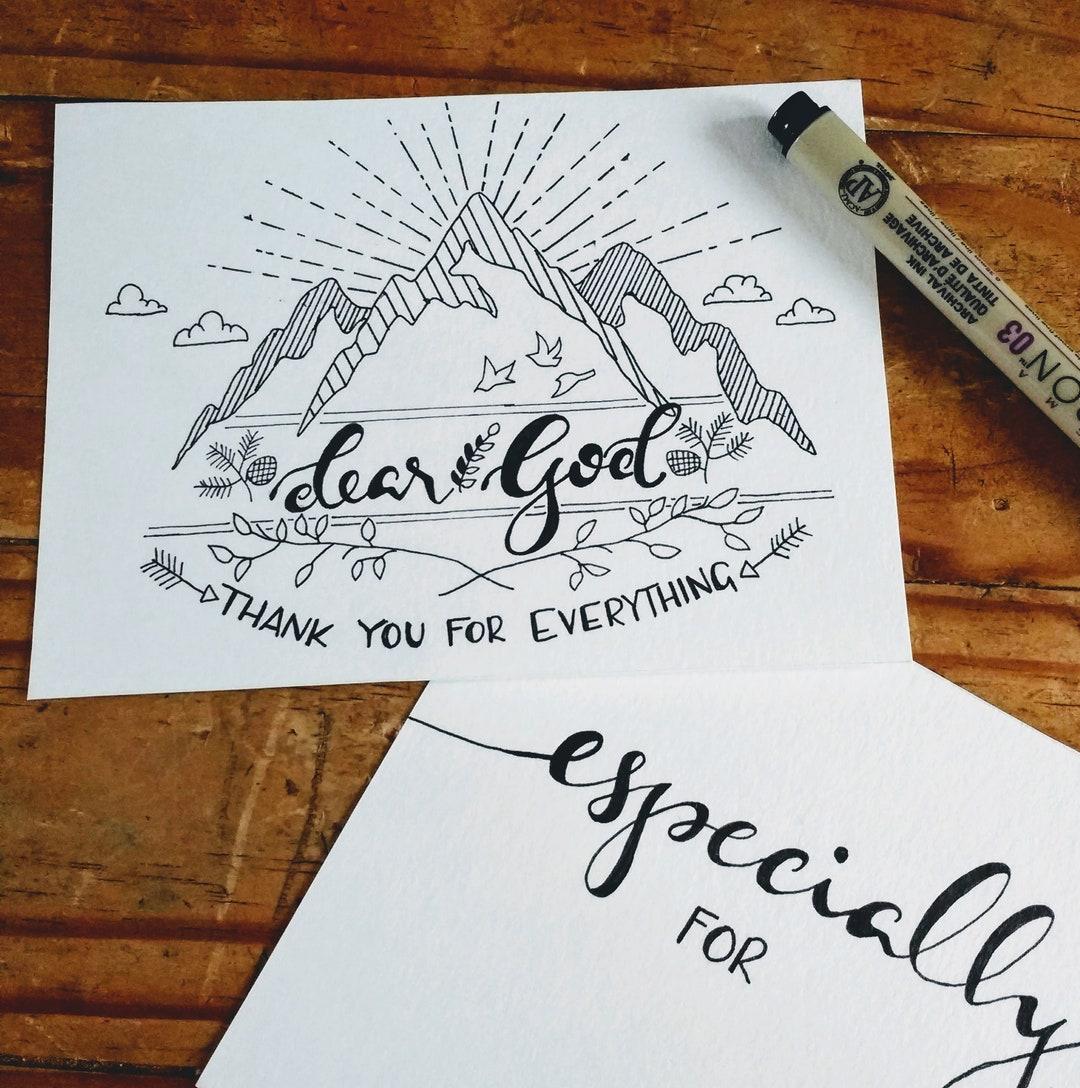 dear God
THANK YOU FOR EVERYTHING
especially
FOR
AP
ARCHIVAL INK
QUALITÉ D'ARCHIVAGE
TINTA DE ARCHIVE
03